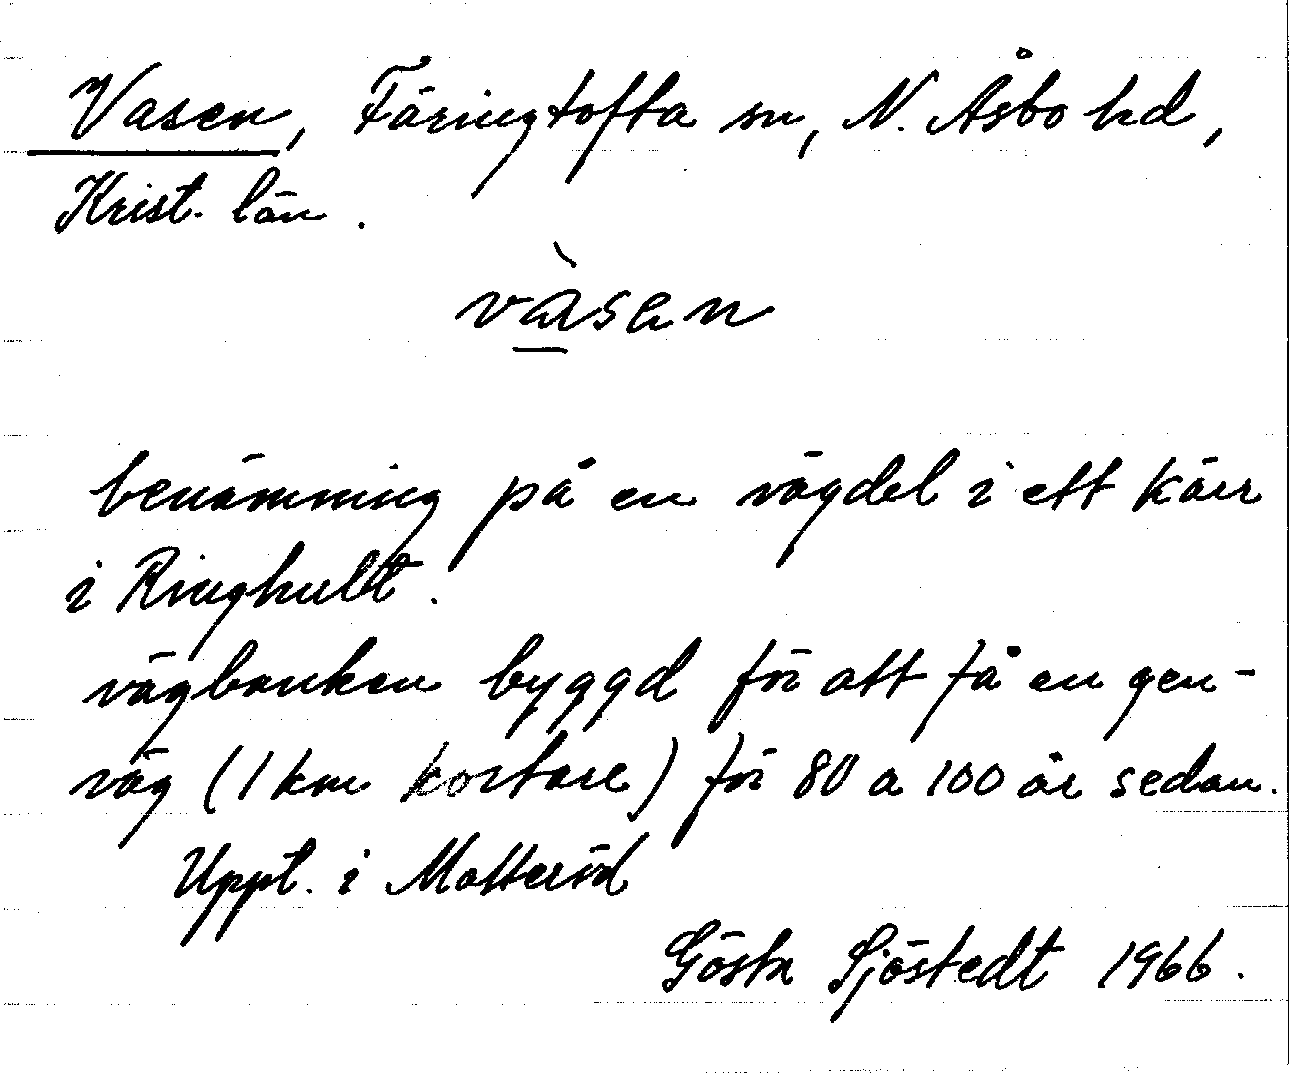 Vasen, Färingtofta sn, N. Åsbo hd,
Krist. län.
vàsen
benämning på en vägdel i ett kärr
i Ringhult.
vägbanken byggd för att få en gen-
väg (1 km kortare) för 80 a 100 år sedan.
Uppt. i Matteröd
Gösta Sjöstedt 1966.